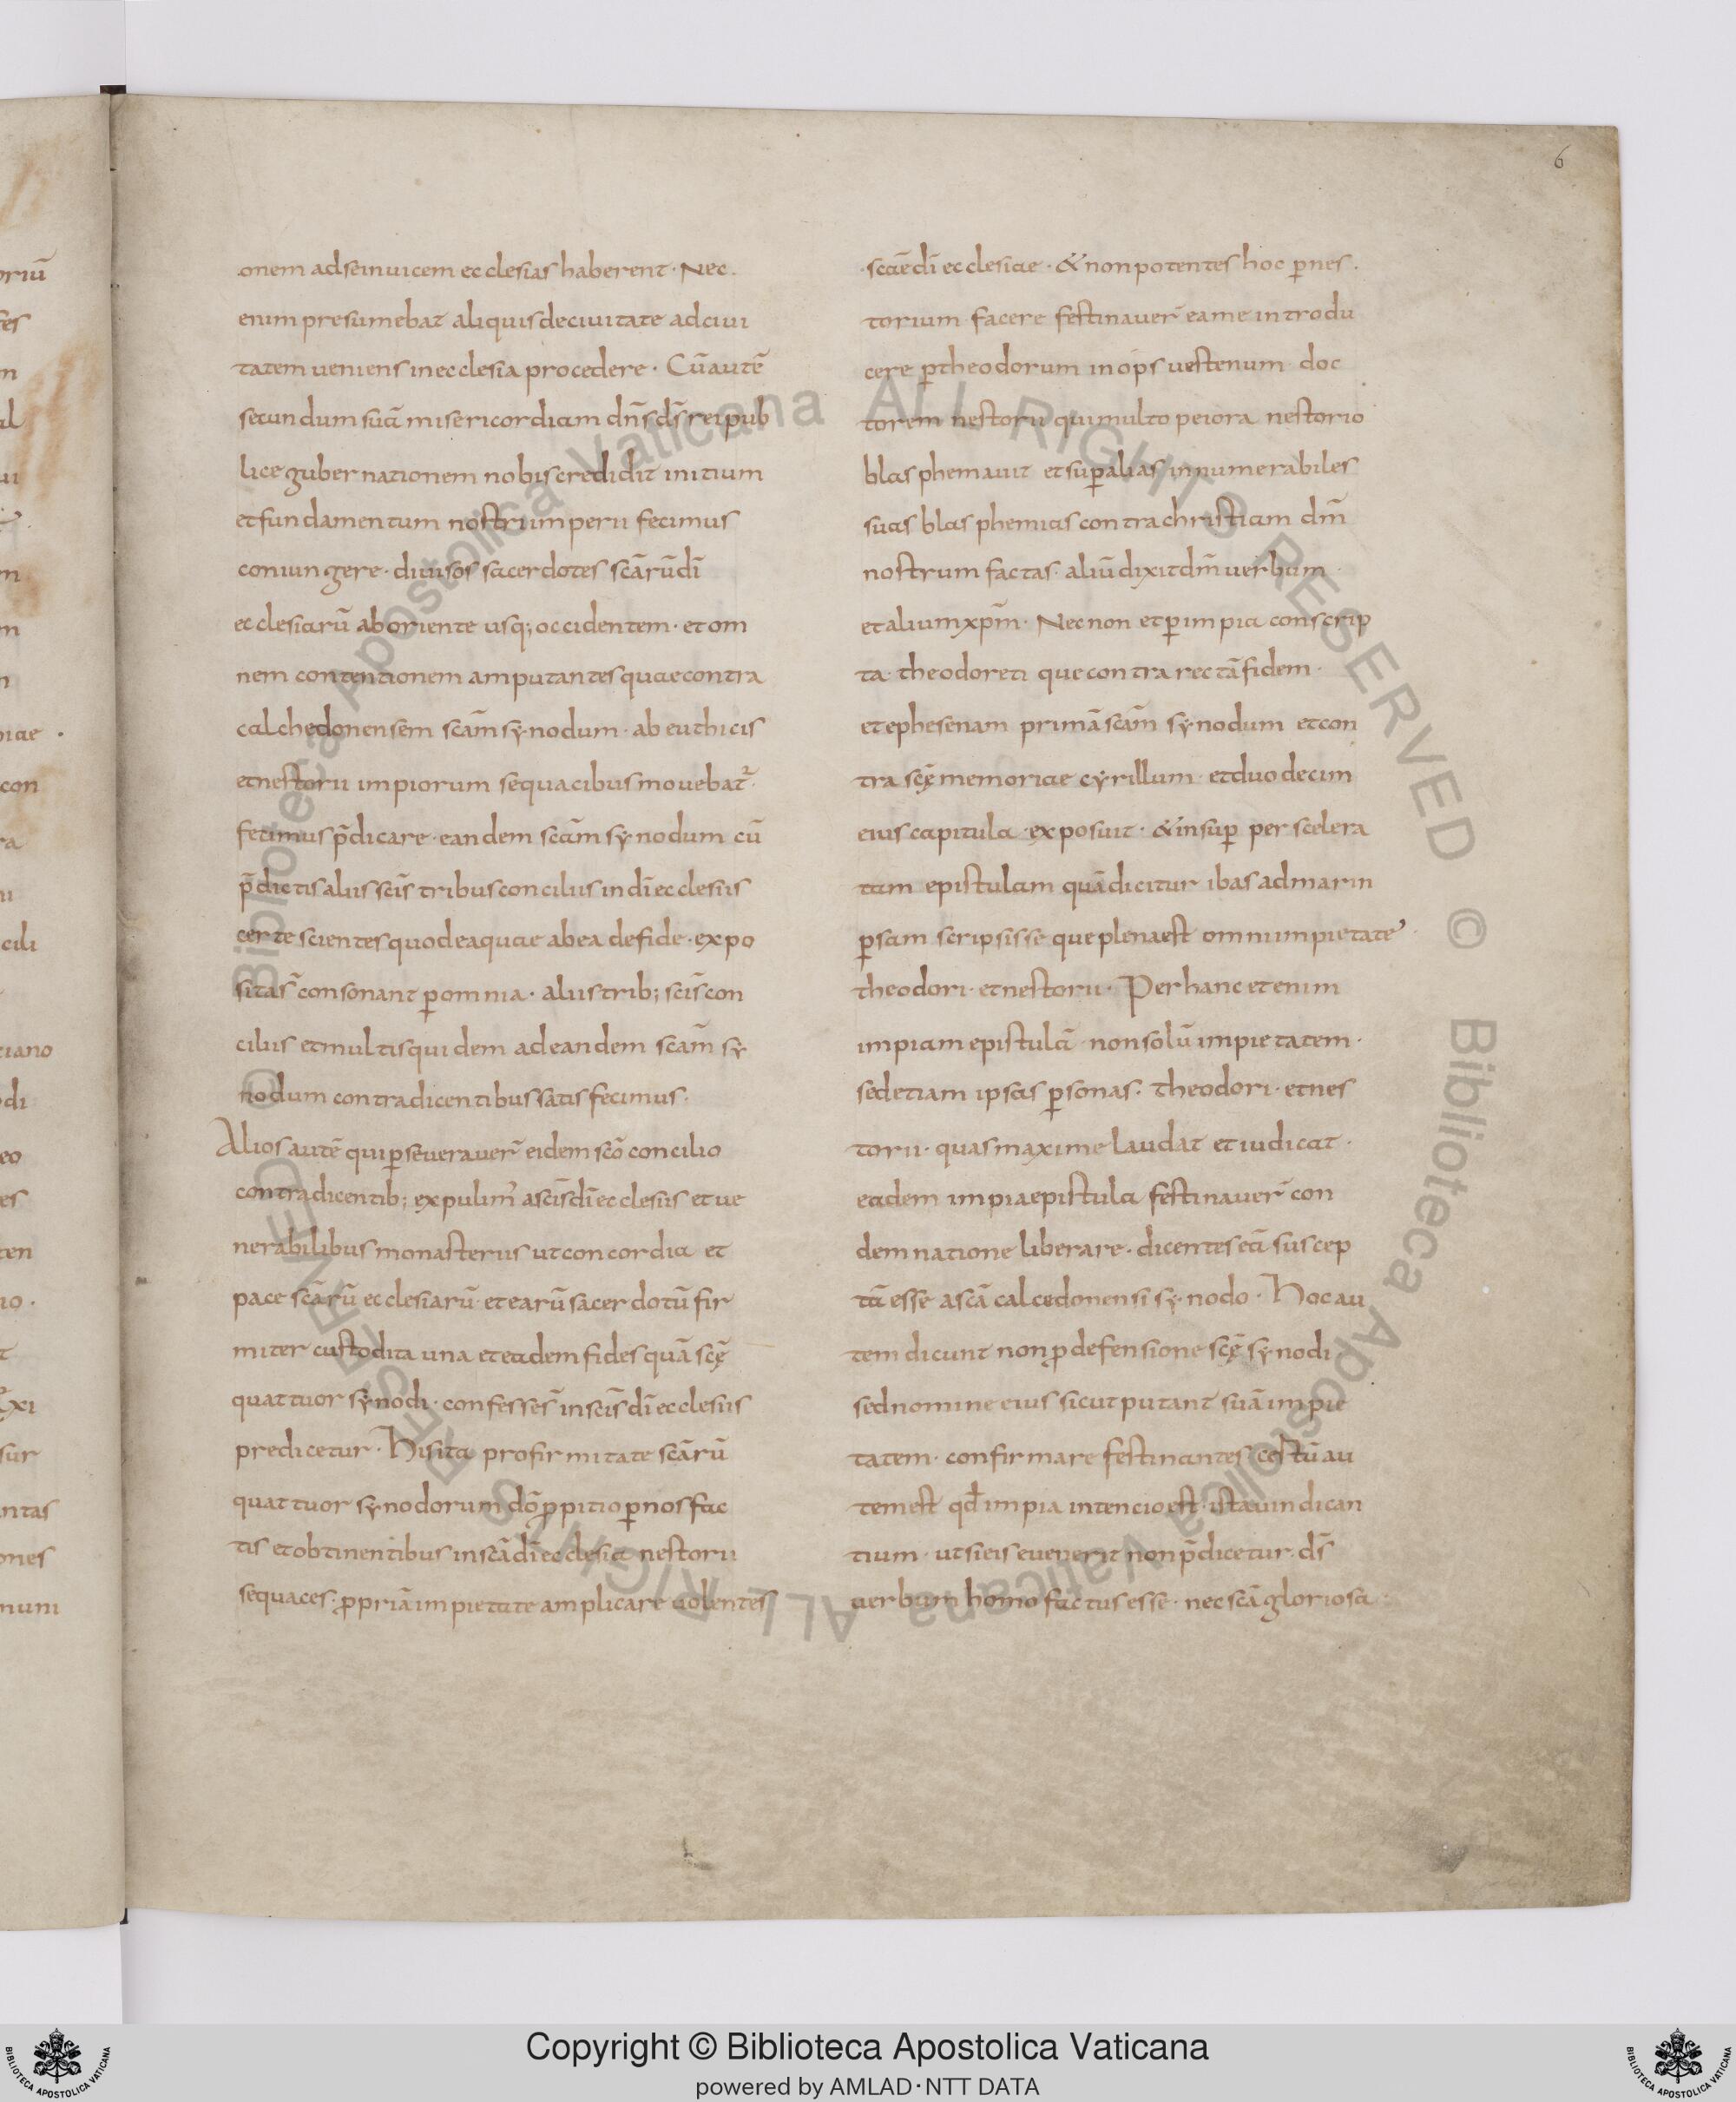 6
onem adseinuicem ecclesias haberent · Nec .
enim presumebat aliquis deciuitate adciui
tatem ueniens inecclesia procedere · Cū autē
secundum suā misericordiam dn̄s ds̄ reipub
lice gubernationem nobis credidit initium
et fundamentum nostri imperii fecimus
coniungere · diuisos sacerdotes scārū dī
ecclesiarū ab oriente usq; occidentem · et om
nem contentionem amputantes quae contra
calchedonensem scām synodum · ab euthicis
et nestorii impiorum sequacibus mouebat᷑ ·
fecimus p̄dicare · eandem scām synodum cū
p̄dictis aliis scīs tribus conciliis in dī ecclesiis
certe scientes quod ea quae ab ea de fide · expo
sitas̄ consonant ꝑ omnia · aliis trib; scīs con
ciliis et multis quidem ad eandem scām sy
nodum contradicentibus satis fecimus ·
Alios autē qui ꝑseuerauer̄ eidem scō concilio
contradicentib; expulim᾽ a scīs dī ecclesiis et ue
nerabilibus monasteriis ut concordia et
pace scārū ecclesiarū et earū sacerdotū fir
miter custodita una et eadem fides quā scę̄
quattuor synodi · confesses̄ in scīs dī ecclesiis
predicetur · His ita pro firmitate scārū
quattuor synodorum dō ꝓpitio ꝑ nos fac
tis et obtinentibus in scā dī ecclesia nestorii
sequaces · ꝓpriā impietate amplicare uolentes
· scāe dī ecclesiae · & non potentes hoc ꝑ nes .
torium facere festinauer̄ eam e introdu
cere ꝑ theodorum in opsuestenum doc
torem nestorii qui multo peiora nestorio
blasphemauit et suꝑ alias innumerabiles
suas blasphemias contra christiam dm̄
nostrum factas · aliū dixit dm̄ uerbum ·
et alium xpm̄ · Nec non et ꝑ impia conscrip
ta · theodoreti que contra rectā fidem ·
et ephesenam primā scām synodum et con
tra scę̄ memoriae cyrillum · et duodecim
eius capitula · exposuit · & insuꝑ per scelera
tam epistulam quā dicitur ibas ad marin
ꝑsam scripsisse que plena est omni impietate᾽ ·
theodori · et nestorii · Per hanc etenim
impiam epistulā non solū impietatem ·
sed etiam ipsas ꝑsonas · theodori · et nes
torii · quas maxime laudat et iudicat ·
eadem impia epistula festinauer̄ con
demnatione liberare · dicentes eā suscep
tā esse a scā calcedonensi synodo · Hoc au
tem dicunt non ꝓ defensione scę̄ synodi
sed nomine eius sicut putant suā impie
tatem · confirmare festinantes cestū au
tem est qd̄ impia intencio est · ista uindican
tium · ut si eis euenerit non p̄dicetur · ds̄
uerbum homo factus esse · nec scā gloriosa ·
Copyright © Biblioteca Apostolica Vaticana
powered by AMLAD · NTT DATA